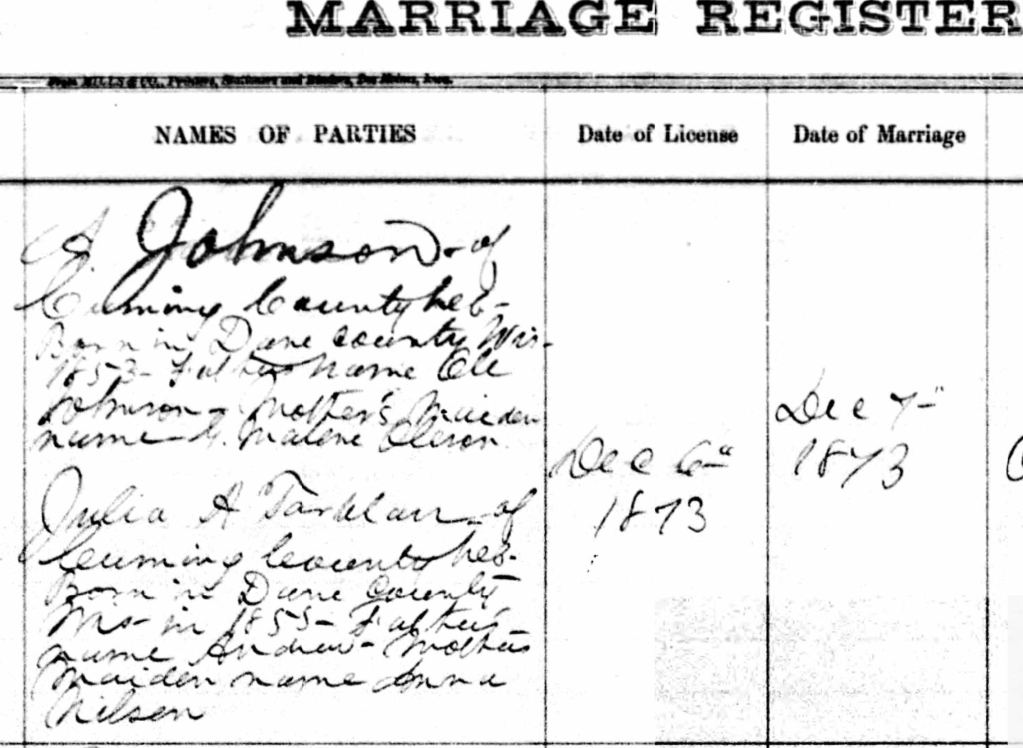 MARRIAGE REGISTER
From MILLS & CO., Printers, Stationers and Binders, Des Moines, Iowa.
NAMES OF PARTIES
Date of License
Date of Marriage
A Johnson - of
Cuming County Neb -
Born in Dane County Wis -
1853 - Father's Name Ole
Johnson - Mother's Maiden
name - Malene Oleson
Julia A of
Cuming County Neb -
Born in Dane County
in 1855 - Father's
name Andrew - Mother's
Maiden name Anna
Nilsen
Dec 6"
1873
Dec 7"
1873